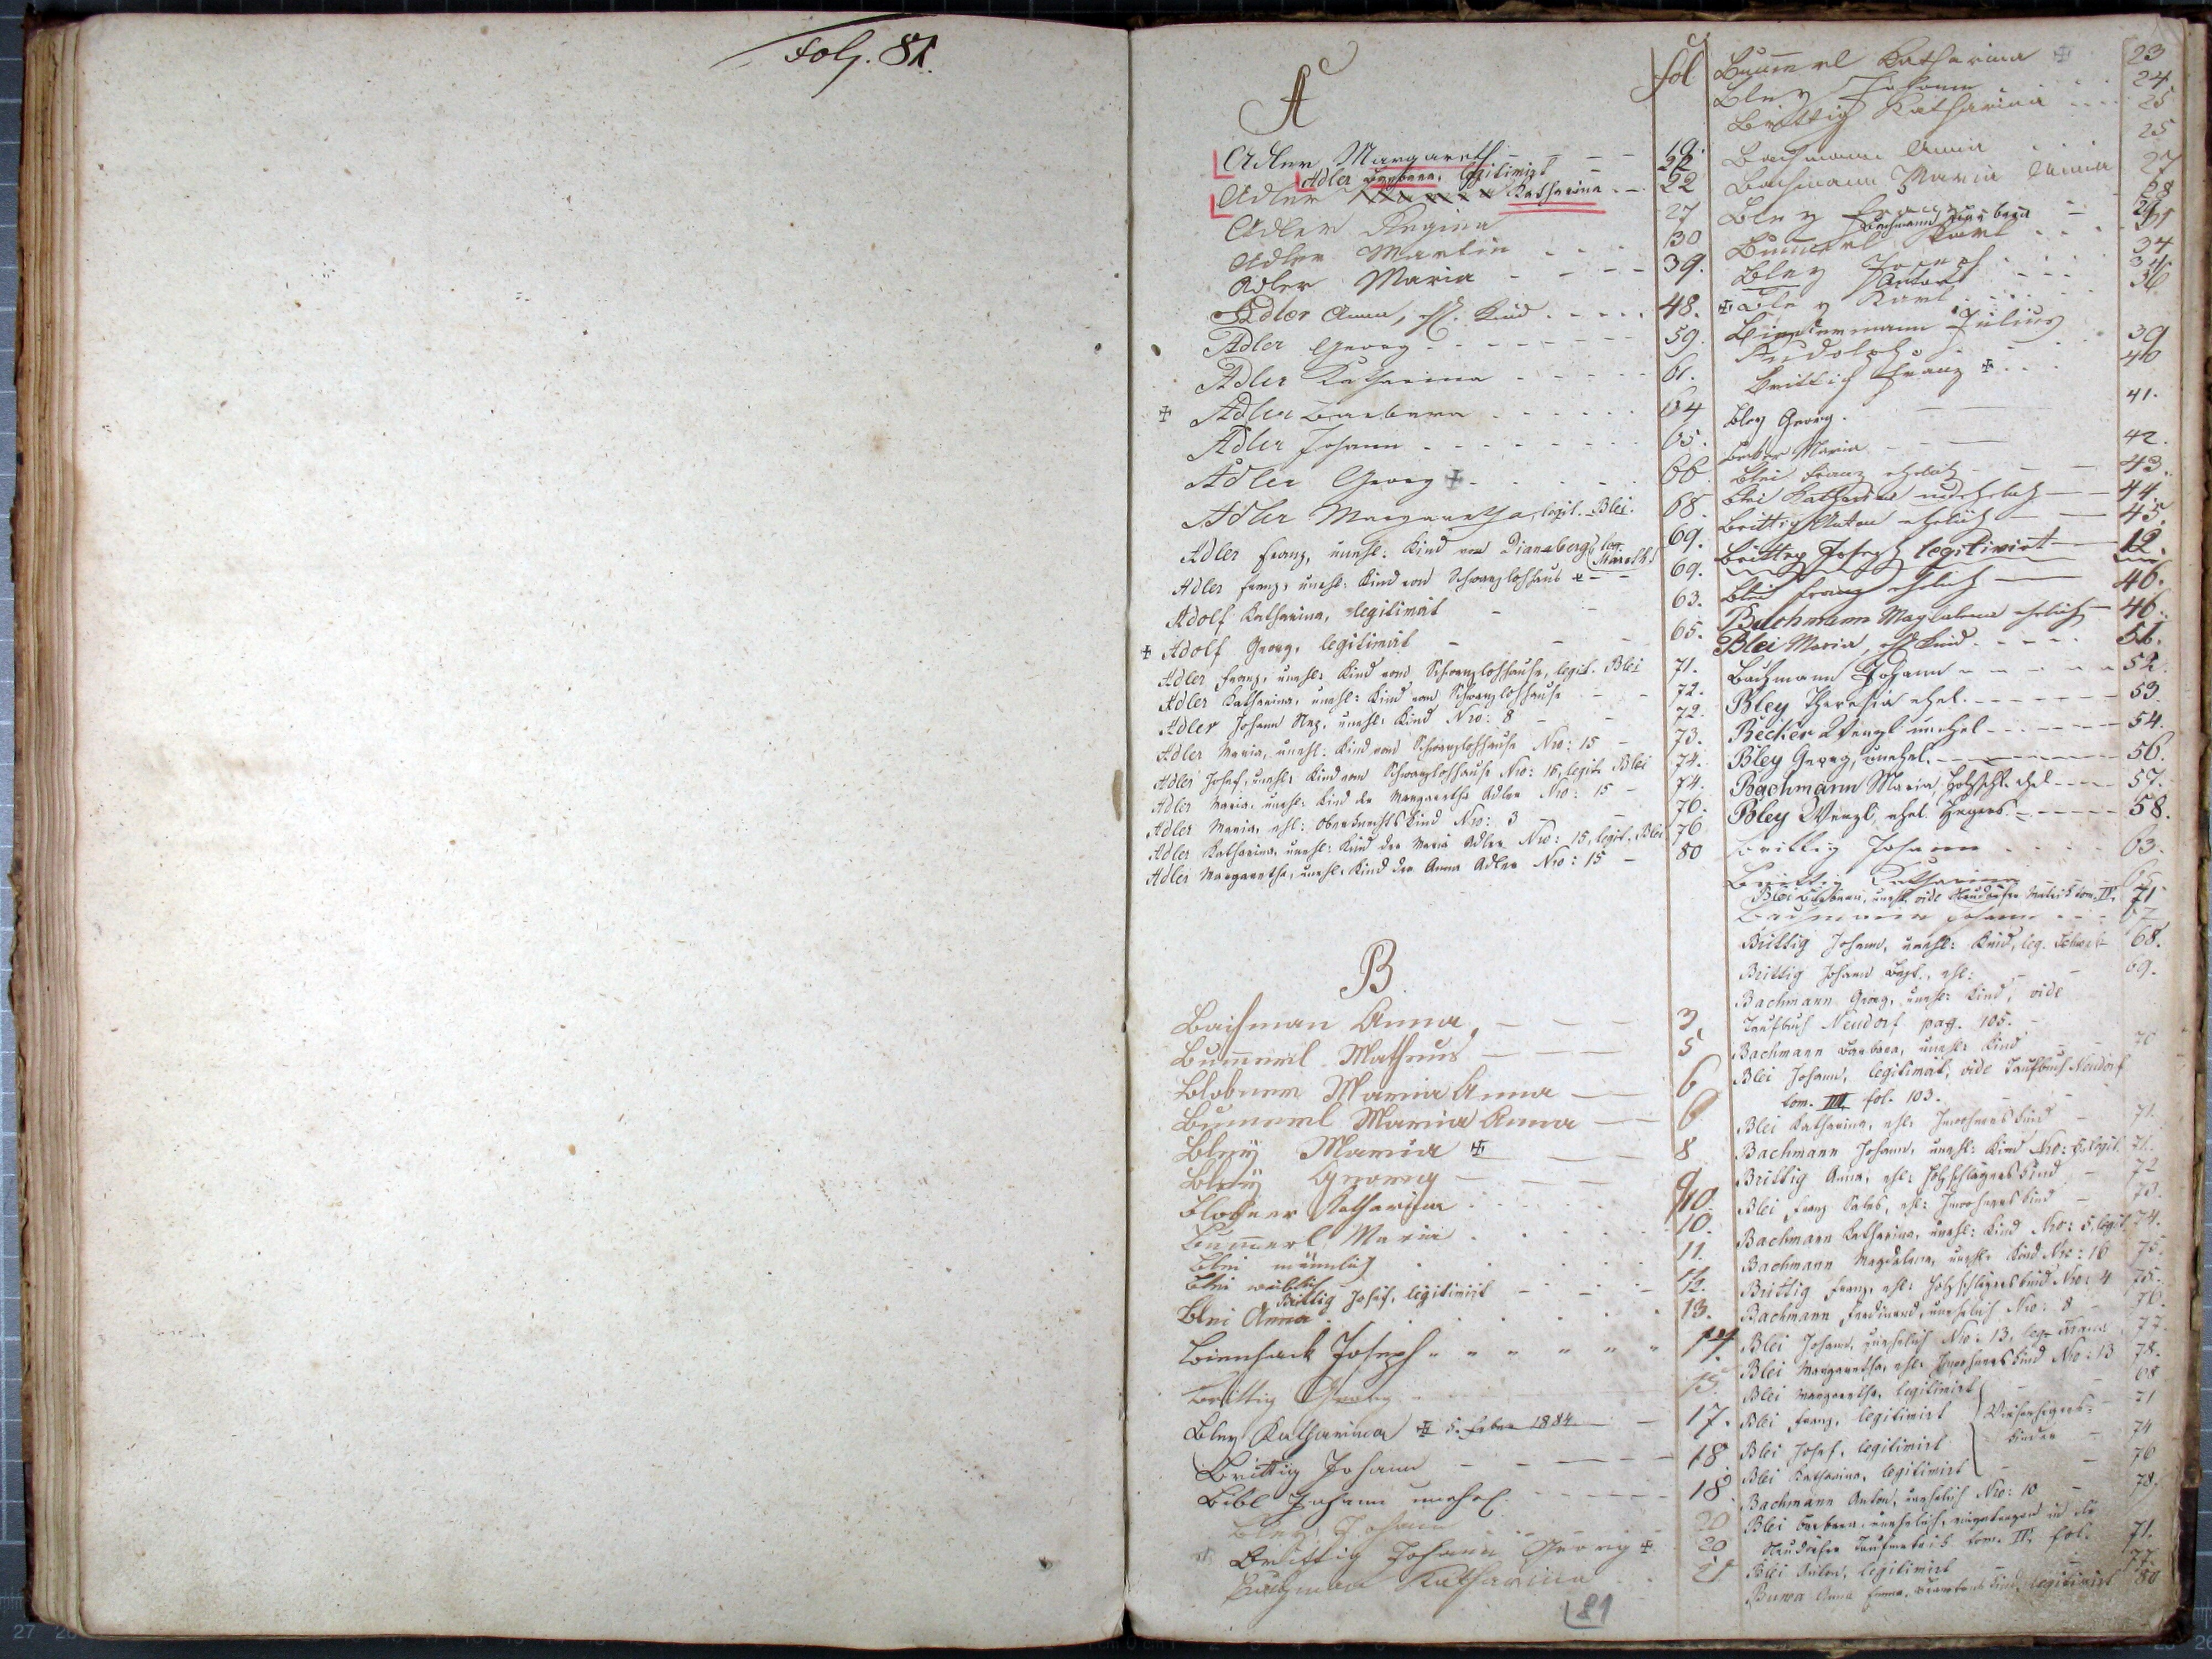 Fol. 81.
A
fol
Adler Margareth - - - 19.
Adler Barbara, legitimirt - 22
Adler Katharina - - 22
Adler Regina 27
Adler Martin - - - 30
Adler Maria - - - - 39.
Adler Anna, ehl. Kind - - - - 48.
Adler Georg - - - - - - - 59.
Adler Katharina - - - - - 61.
Adler Barbara - - - - - - 64
Adler Johann - - - - - - - 65.
Adler Georg - - - - - 66.
Adler Margaretha, legit. Blei. 68.
Adler Franz, unehl: Kind von Dianaberg, leg. 69.
Adler Franz, unehl: Kind von Schwanzlohhaus - - 69.
Adolf Katharina, legitimirt - - 63.
Adolf Georg, legitimirt - - - 65.
Adler Franz, unehl: Kind vom Schwanzlohhause, legit. Blei 71.
Adler Katharina, unehl: Kind vom Schwanzlohhause - - 72.
Adler Johann Nep. unehl: Kind Nro: 8 - - 72.
Adler Maria, unehl: Kind vom Schwanzlohhause Nro: 15 - 73.
Adler Josef, unehl: Kind vom Schwanzlohhause Nro: 15, legit. Blei 74.
Adler Maria, unehl: Kind der Margaretha Adler Nro: 15 - 74.
Adler Maria, ehl: Oberknechts Kind Nro: 3 - - 76.
Adler Katharina, unehl: Kind der Maria Adler Nro: 15, legit. Blei 76
Adler Margaretha, unehl: Kind der Anna Adler Nro: 15 - 80
B.
Bachman Anna - - - 3.
Bummerl Matheus - - - 5
Blobner Maria Anna - - 6
Bummerl Maria Anna - - 6
Bleÿ Maria - - - 8
Bleÿ Georg - - - 9
Blobner Katharina - - - 10.
Bummerl Maria - - - 10.
Blei männlich 11.
Blei weiblich 12.
Brittig Josef, legitimirt - - - 12.
Blei Anna 13.
Bienhack Joseph 14.
Brittig Georg 15.
Bley Katharina 5. Feber 1884 - - 17.
Brittig Johann - - - - - 18
Bibl Johann unehel. - - - - - 18.
Bley Johann 20
Brittig Johann Georg 20
Bachman Katharina 21
81
Bummerl Katharina 23
Bley Johann 24
Brittig Katharina 25
Bachmann Anna 25
Bachmann Maria Anna 27
Bley Franz - 28
Bachmann Barbara 29
Bummerl Karl 31
Bley Joseph 34
Anton 34.
Bley Karl 36
Biedermann Julius
Rudolph 39
Brittig Franz 40
Bley Georg. 41.
Maria 42.
Blei Franz ehelich - - 43.
Blei Katharina unehelich - - 44.
Brittig Anton ehelich - - 45.
Brittig Joseph legitimirt - 12.
Blei Franz ehelich - 46.
Bachmann Magdalena ehelich - 46.
Blei Maria, ehl. Kind - - - 51.
Bachmann Johann - - - - - 52.
Bley Theresia ehel. - - - - - 53.
Becker Wenzl unehel - - - - - 54.
Bley Georg, unehel. - - - - - 56.
Bachmann Maria, Holzschl. ehel - - - 57.
Bley Wenzl, ehel. Hegers - - - - 58.
Brittig Johann - - - 63.
Brittig Katharina 65.
Blei Barbara, unehl. vide Neudorfer Matrik tom. IV. 71
Bachmann Johann - - - 67
Brittig Johann, unehl: Kind, leg. 68.
Brittig Johann Bapt., ehl: - - 69.
Bachmann Georg, unehl: Kind, vide
Taufbuch Neudorf pag. 105. -
Bachmann Barbara, unehl: Kind - - 70
Blei Johann, legitimirt, vide Taufbuch Neudorf
tom. III fol. 103. - -
Blei Katharina, ehl: Inwohners Kind - 71.
Bachmann Johann, unehl: Kind Nro: 5, legit. 71.
Brittig Anna, ehl: Holzschlägers Kind - 72
Blei Franz, ehl: Inwohners Kind - 73.
Bachmann Katharina, unehl: Kind Nro: 5, legit. 74.
Bachmann Magdalena, unehl: Kind Nro: 16 75.
Brittig Franz, ehl: Holzschlägers Kind Nro: 4 75.
Bachmann Ferdinand, unehelich Nro: 8 - 76.
Blei Johann, unehelich Nro: 13, leg. 77.
Blei Margaretha, ehl: Inwohners Kind Nro: 13 78.
Blei Margaretha, legitimirt - - 68
Blei Franz, legitimirt - 71
Blei Josef, legitimirt Kinder - 74
Blei Katharina, legitimirt - - 76
Bachmann Anton, unehelich Nro: 10 - 78.
Blei Barbara, unehelich, eingetragen in der
Neudorfer Taufmatrik tom. IV. fol: 71.
Blei Anton, legitimirt - - 77.
Anna Emma, Kind, legitimirt 80